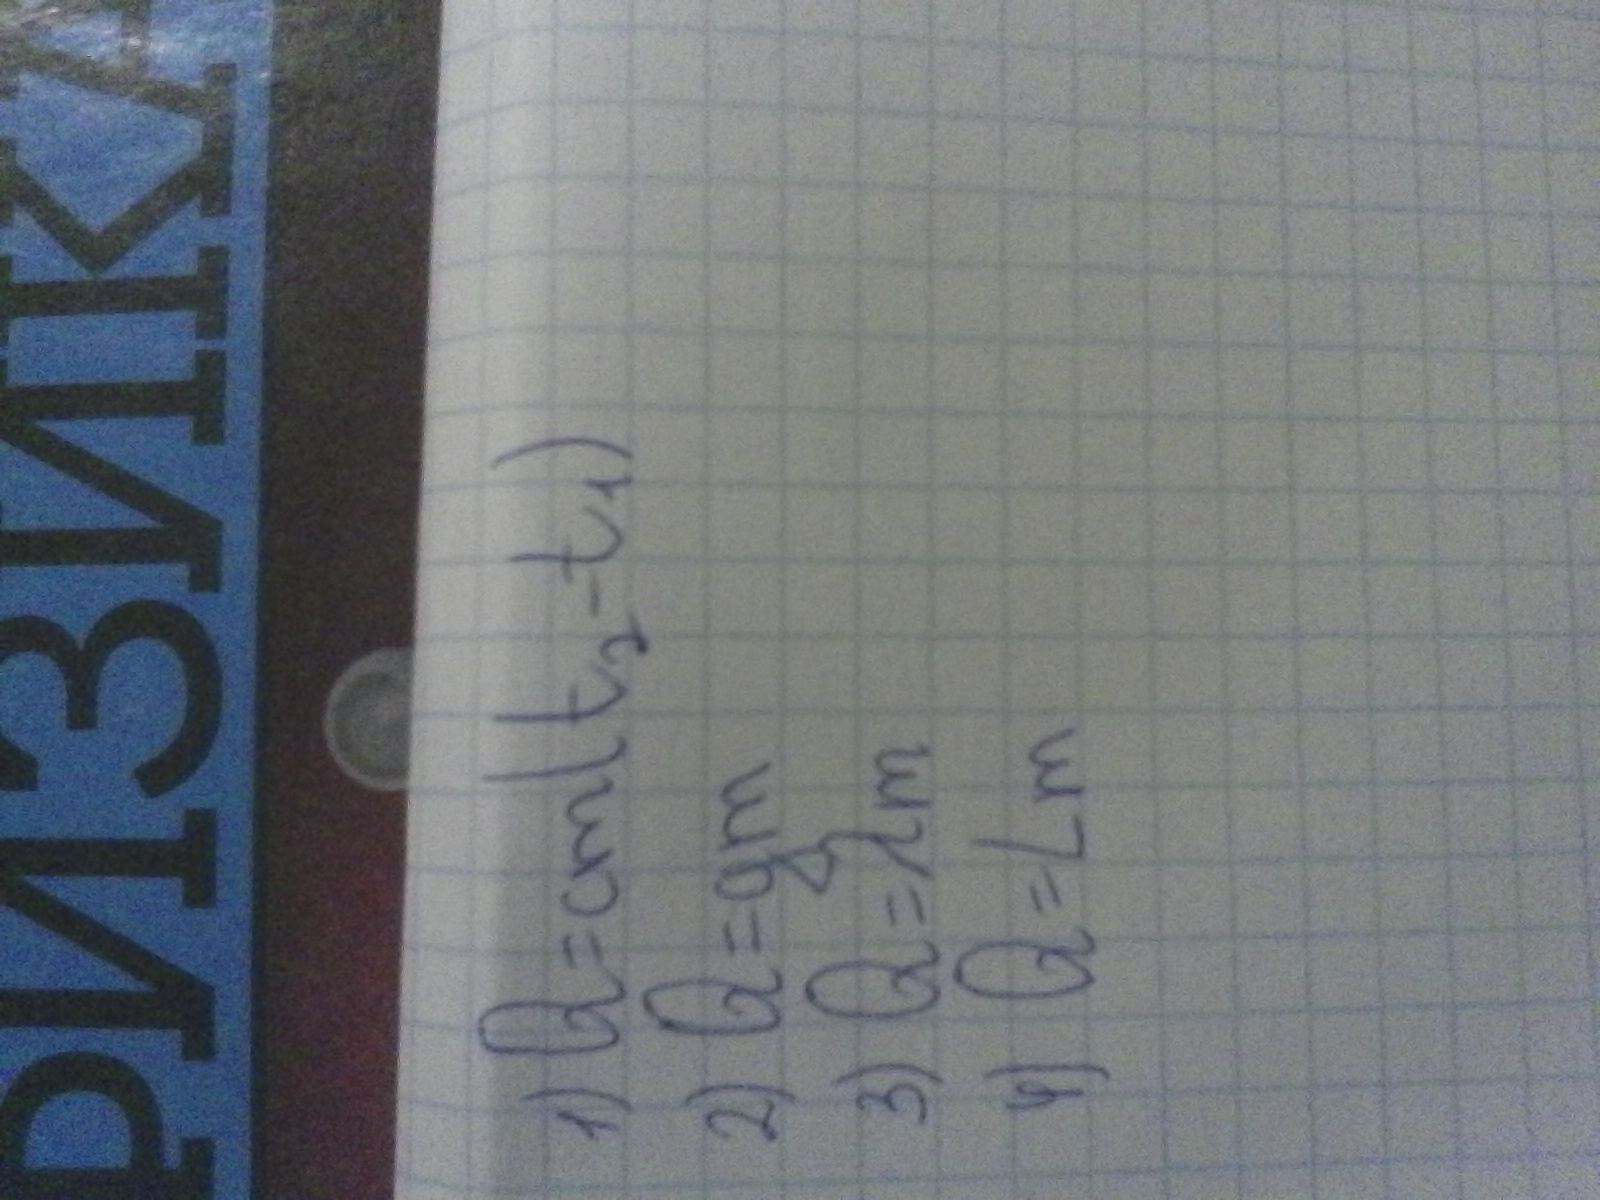 ФИЗИКА
1) Q=cm(t₂-t₁)
2) Q=qm
3) Q=λm
4) Q=Lm